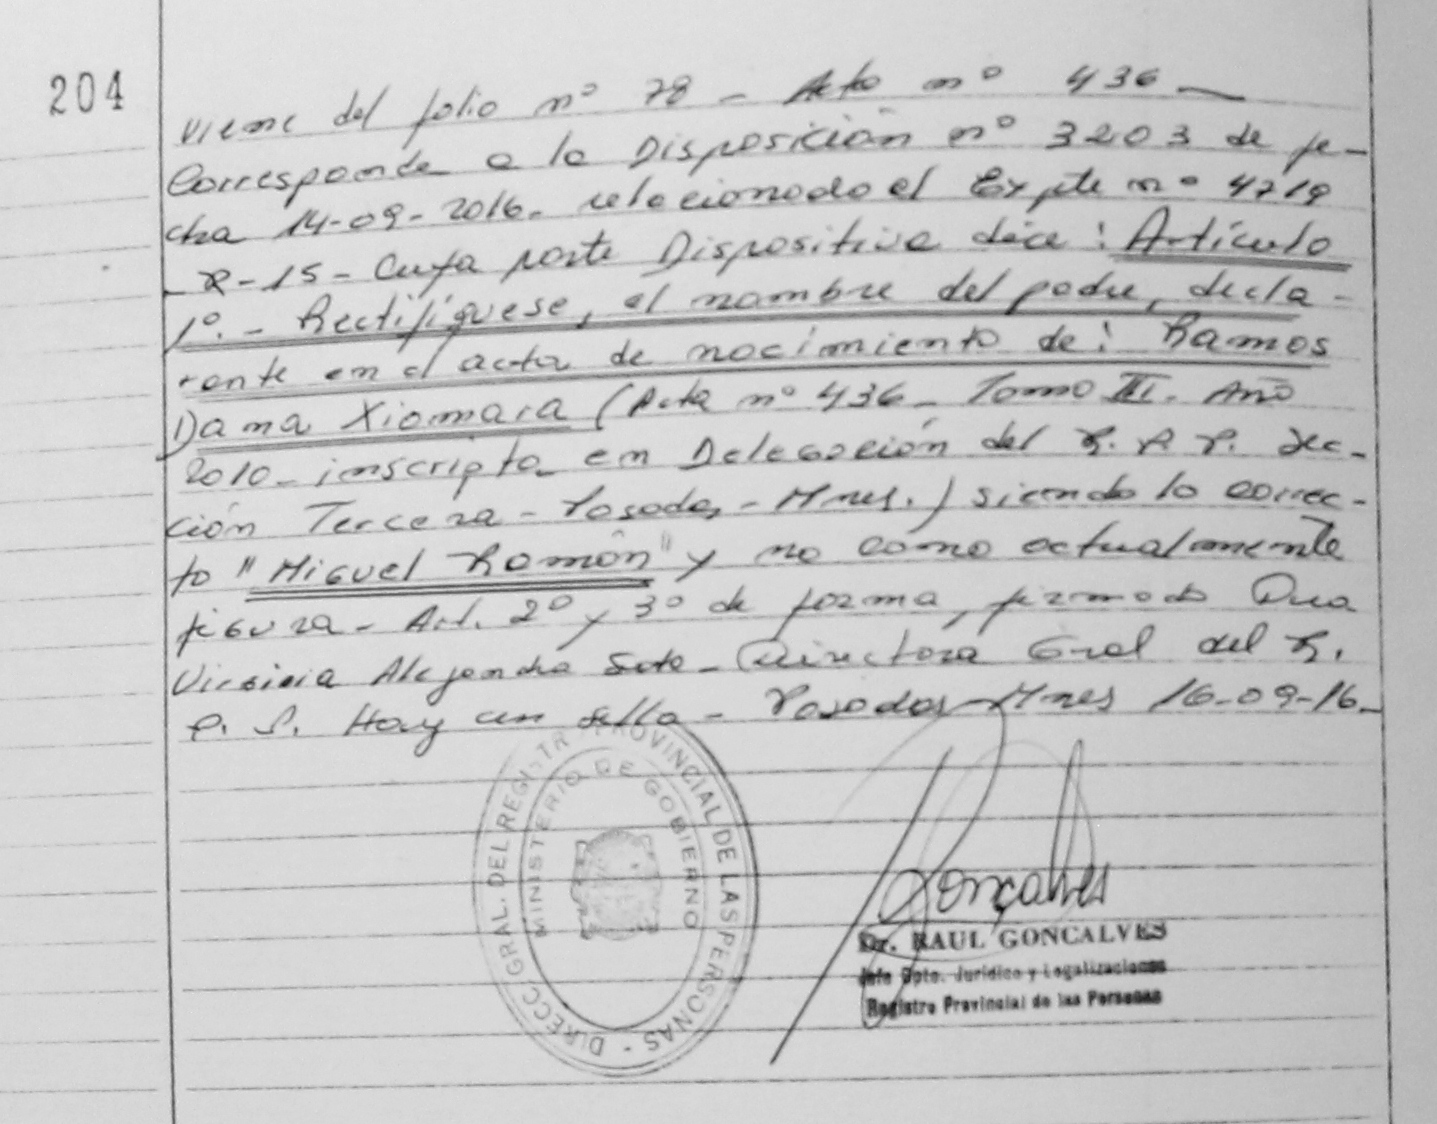 204
viene del folio nº 78 - Acta nº 436 -
Corresponde a la Disposición nº 3203 de fe-
cha 14-09-2016. relacionado el Expte nº 4219
- R-15 - Cuya parte Dispositiva dice: Artículo
1º. - Rectifíquese, el nombre del padre, decla-
rante en el acta de nacimiento de: Ramos
Dama Xiomara (Acta nº 436 - Tomo III. Año
2010 - inscripta en Delegación del R. P. P. Sec-
ción Tercera - Posadas, - Mnes.) siendo lo correc-
to "Miguel Ramón" y no como actualmente
figura - Art. 2º y 3º de forma, firmado Dra
Virginia Alejandra Soto - Directora Gral del R.
P. P. Hay un sello - Posadas Mnes 16-09-16 -
DIRECC. GRAL. DEL REGISTR PROVINCIAL DE LAS PERSONAS -
MINISTERIO DE GOBIERNO
Goncalves
Dr. RAUL GONCALVES
Jefe Dpto. Jurídico y Legalizaciones
Registro Provincial de las Personas